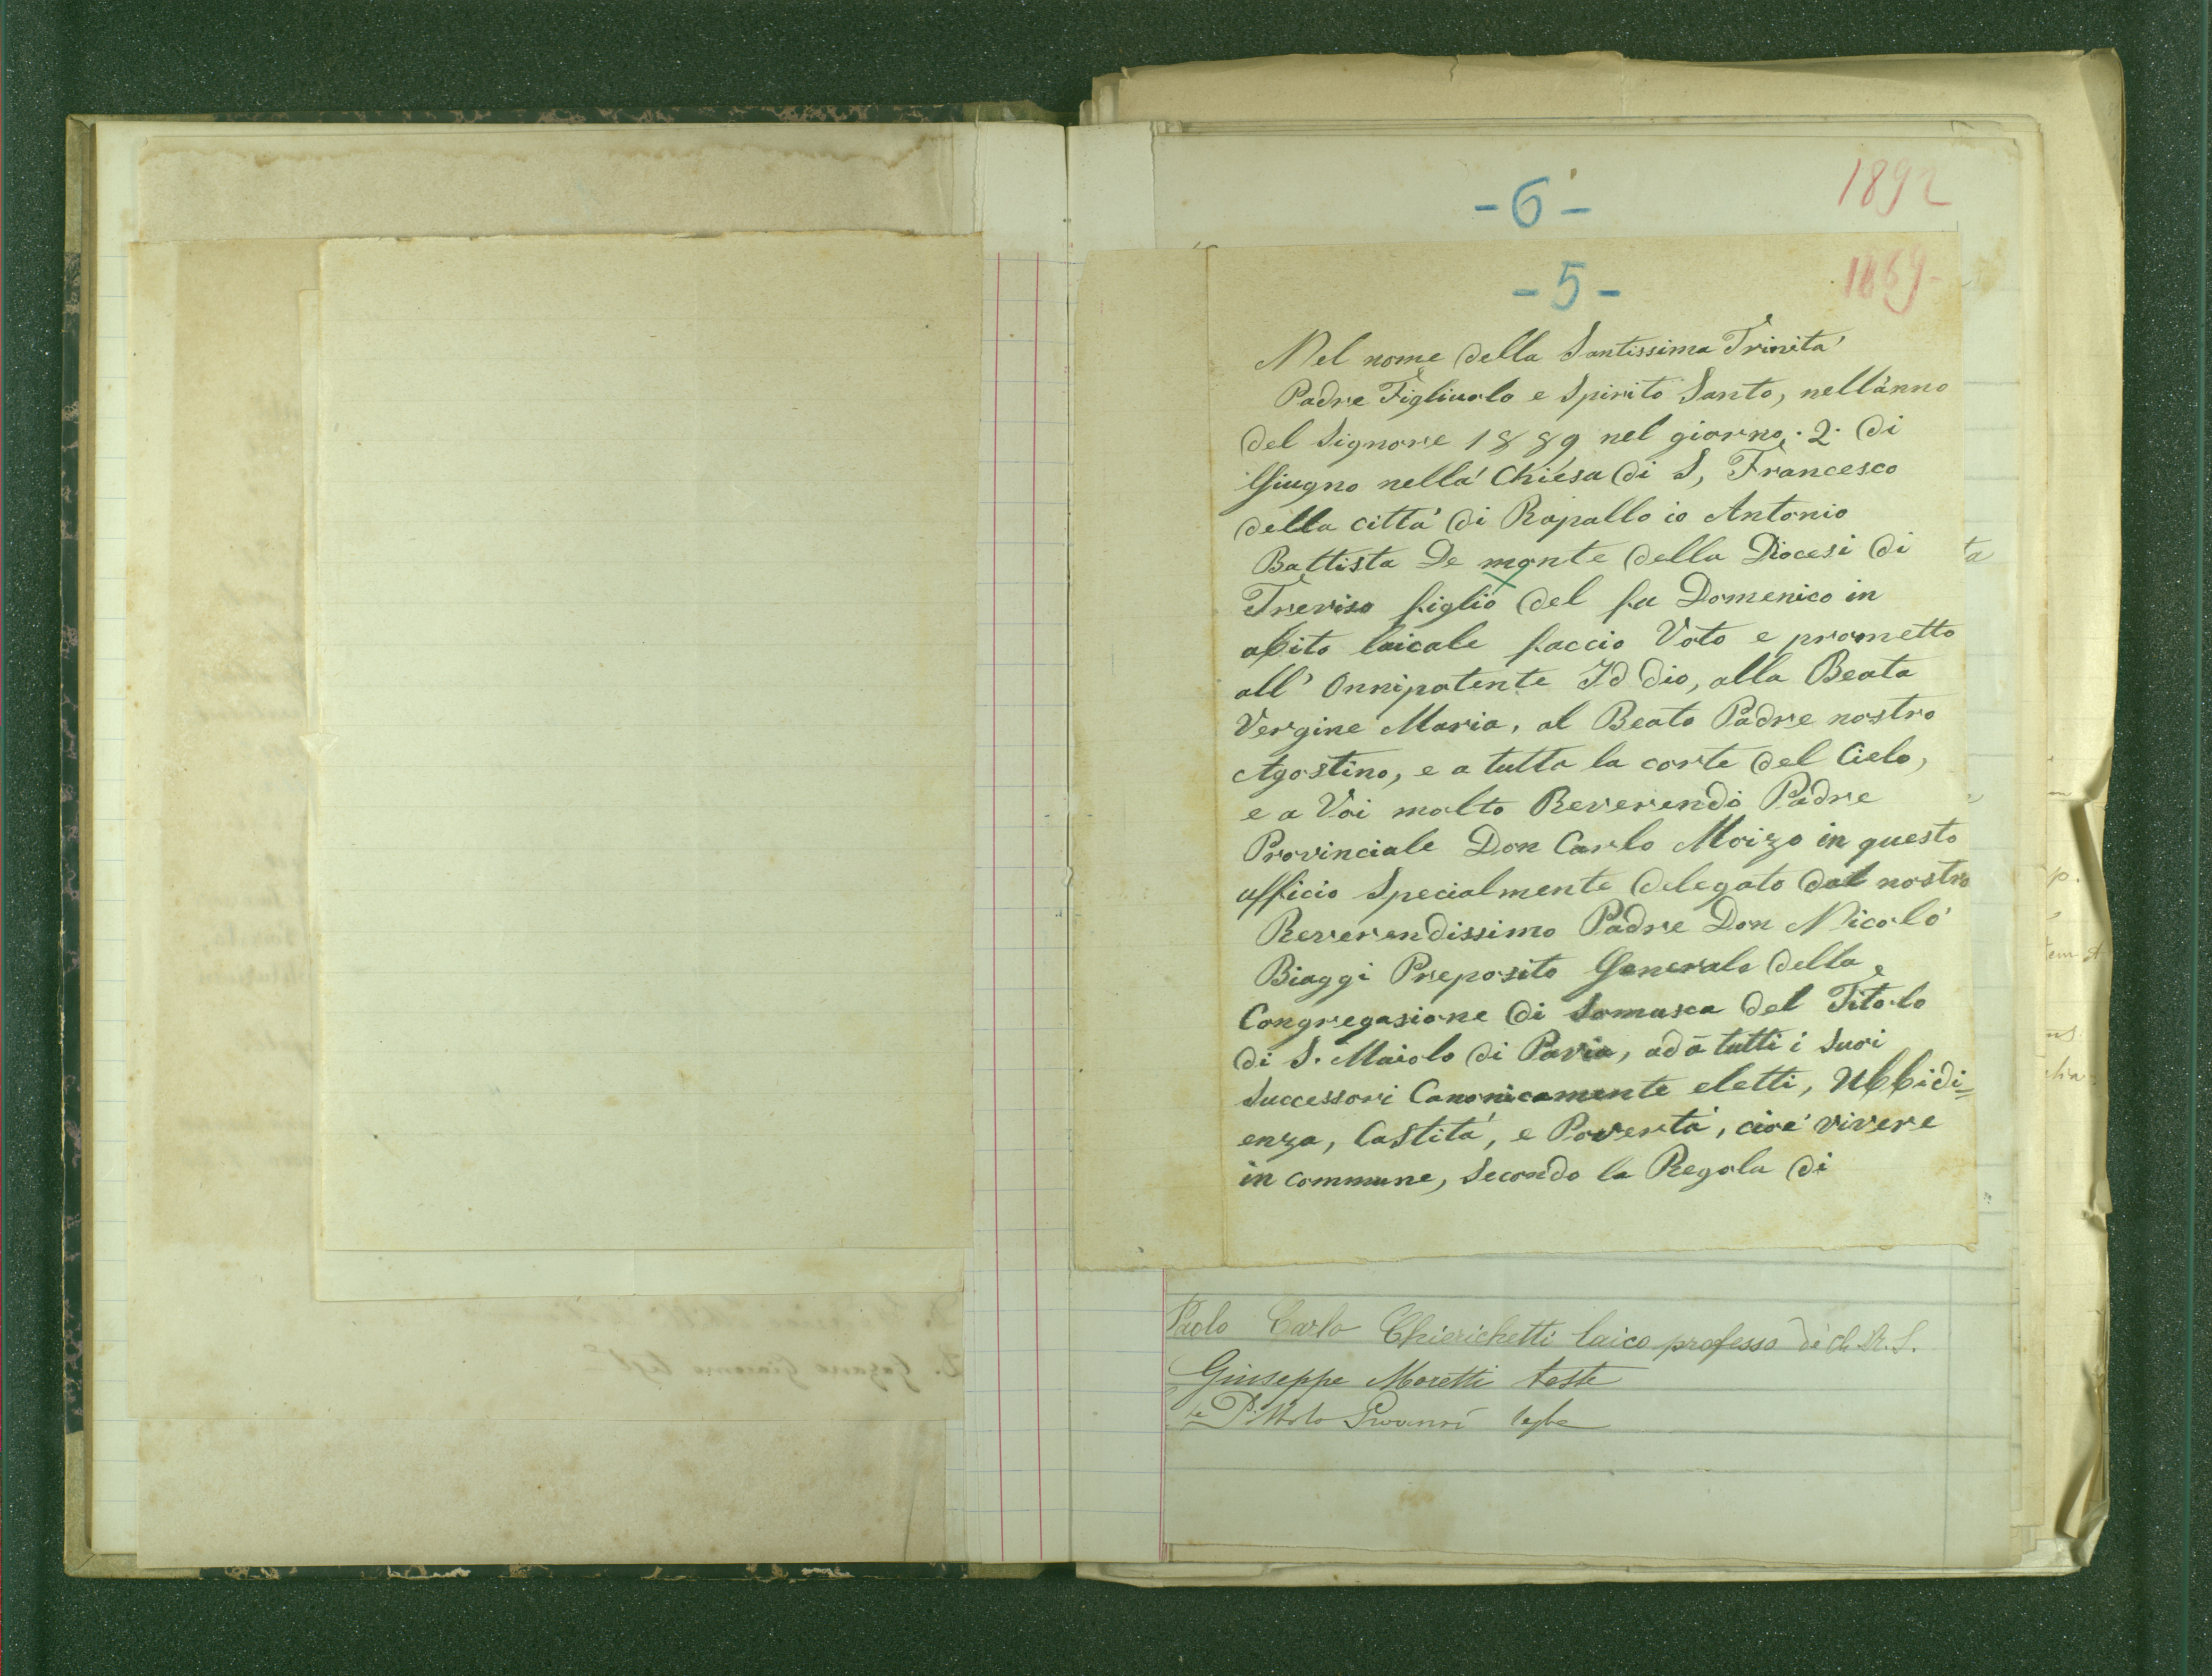 1892
-6-
1869-
-5-
Nel nome della Santissima Trinita'
Padre Figliuolo e Spirito Santo, nell'anno
del Signore 1889 nel giorno. 2. di
Giugno nella' Chiesa di S, Francesco
della citta' di Rapallo io Antonio
Battista De monte della Diocesi di
Treviso figlio del fu Domenico in
abito laicale faccio Voto e prometto
all' Onnipotente Id dio, alla Beata
Vergine Maria, al Beato Padre nostro
Agostino, e a tutta la corte del Cielo,
e a Voi molto Reverendo Padre
Provinciale Don Carlo Moizo in questo
ufficio Specialmente delegato dal nostro
Reverendissimo Padre Don Nicolo'
Biaggi Preposito Generale della
Congregasione di Somasca del Titolo
di S. Maiolo di Pavia, ad a tutti i Suoi
Successori Canonicamente eletti, Ubbidi=
enza, Castita', e Poverta', cioe' vivere
in commune, Secondo la Regola di
Paolo Carlo Chierichetti laico professo
Giuseppe Moretti teste